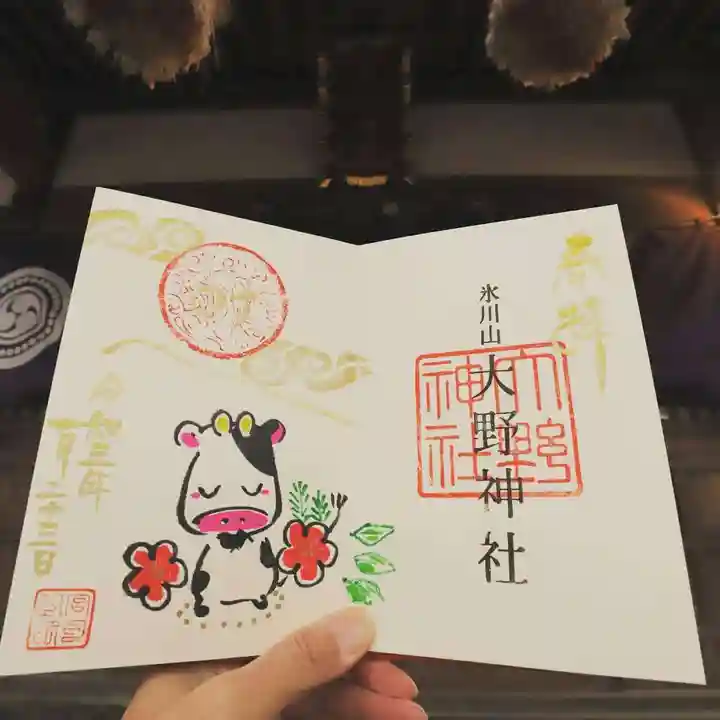 奉拝
氷川山
大野神社
大野
神社
令和三年
一月二十三日